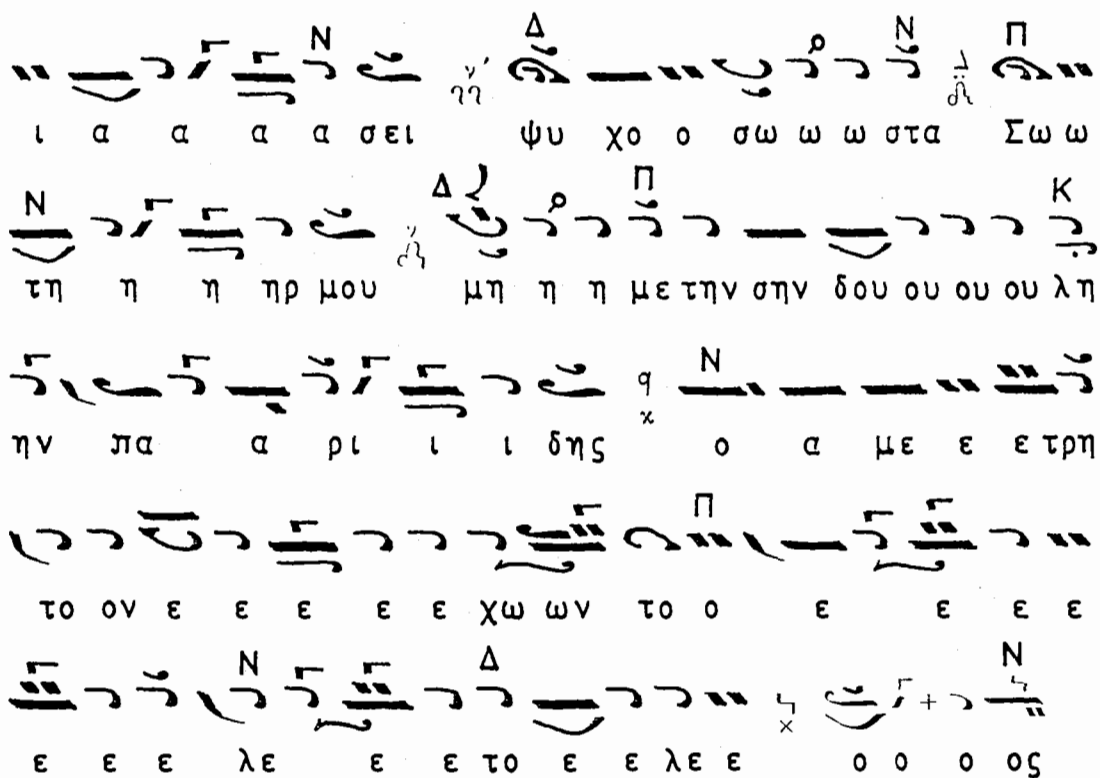 Ν Δ Ν Π
ι α α α α σει ψυ χο ο σω ω ω στα Σω ω
Ν Δ Π Κ
τη η η ηρ μου μη η η με την σην δου ου ου ου λη
Ν
ην πα α ρι ι ι δης ο α με ε ε τρη
Π
το ον ε ε ε ε ε χω ων το ο ε ε ε ε
Ν Δ Ν
ε ε ε λε ε ε το ε ε λε ε ο ο ο ος